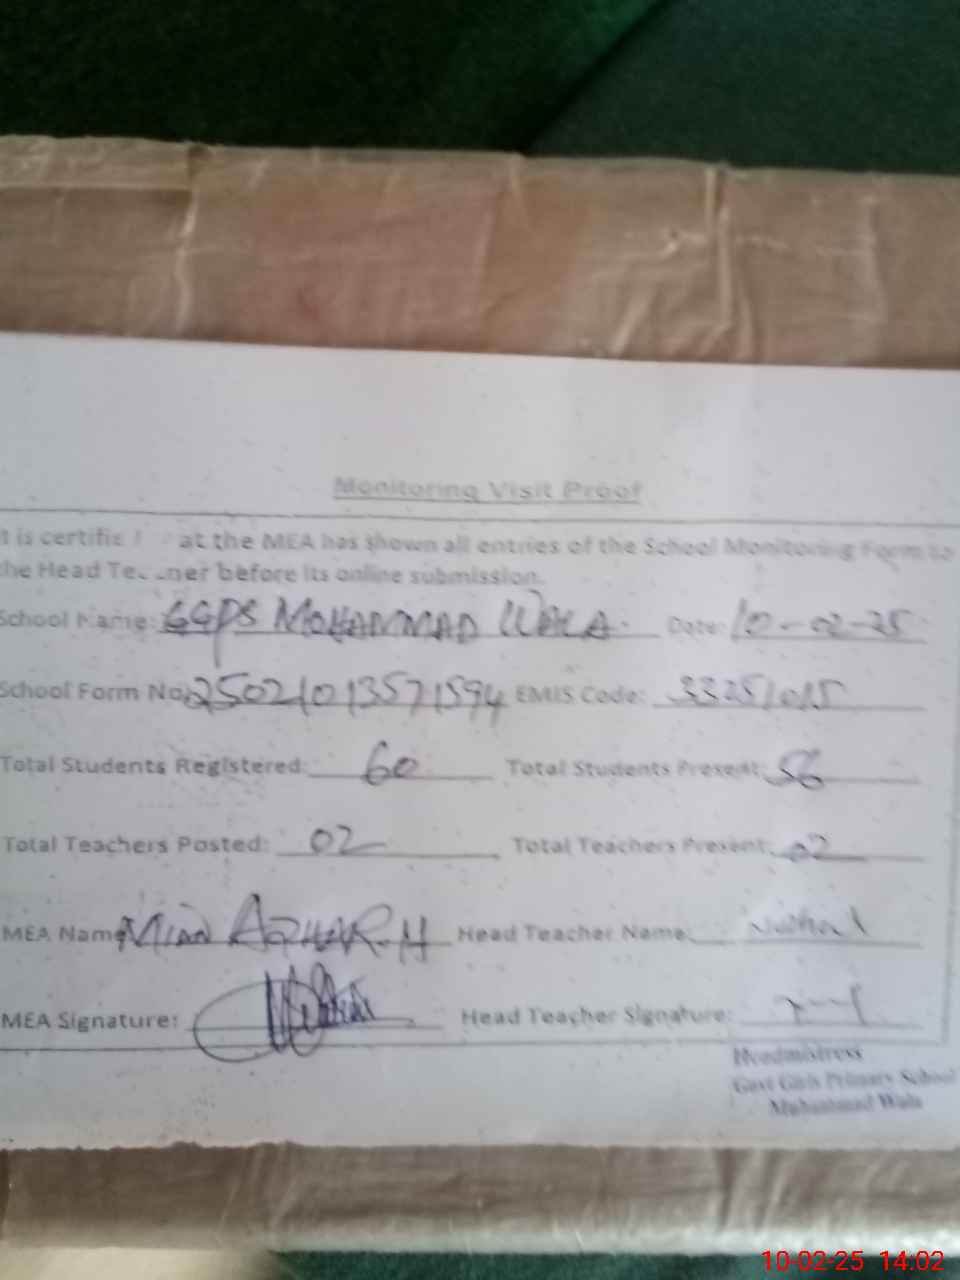 Monitoring Visit Proof
at the MEA has shown all entries of the School Monitoring Form to
the Head before its online submission.
School Name: GGPS MOHAMMAD WALA Date: 10-02-25
School Form No. 25021013571594 EMIS Code: 33251015
Total Students Registered: 60 Total Students Present: 56
Total Teachers Posted: 02 Total Teachers Present: 02
MEA Name MIAN AZHAR.H Head Teacher Name:
MEA Signature: Head Teacher Signature:
Headmistress
Govt Girls Primary School
Muhammad Wala
10-02-25 14:02